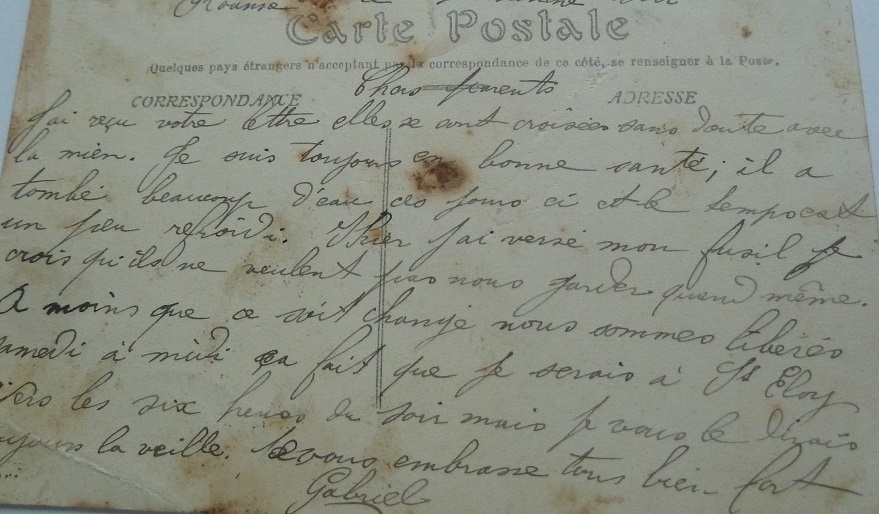 Carte Postale
Quelques pays étrangers n'acceptant pas la correspondance de ce côté, se renseigner à la Poste.
CORRESPONDANCE ADRESSE
Chers parents
J'ai reçu votre lettre elles se sont croisées sans doute avec
la mien. Je suis toujours en bonne santé; il a
tombé beaucoup d'eau ces jours ci et le temps est
un peu refroidi. Hier j'ai versé mon fusil je
crois qu'ils ne veulent pas nous garder quand même.
A moins que ce soit changé nous sommes libérés
samedi à midi ça fait que je serais à St Eloy
vers les six heures du soir mais je vous le dirais
toujours la veille. Je vous embrasse tous bien fort
Gabriel